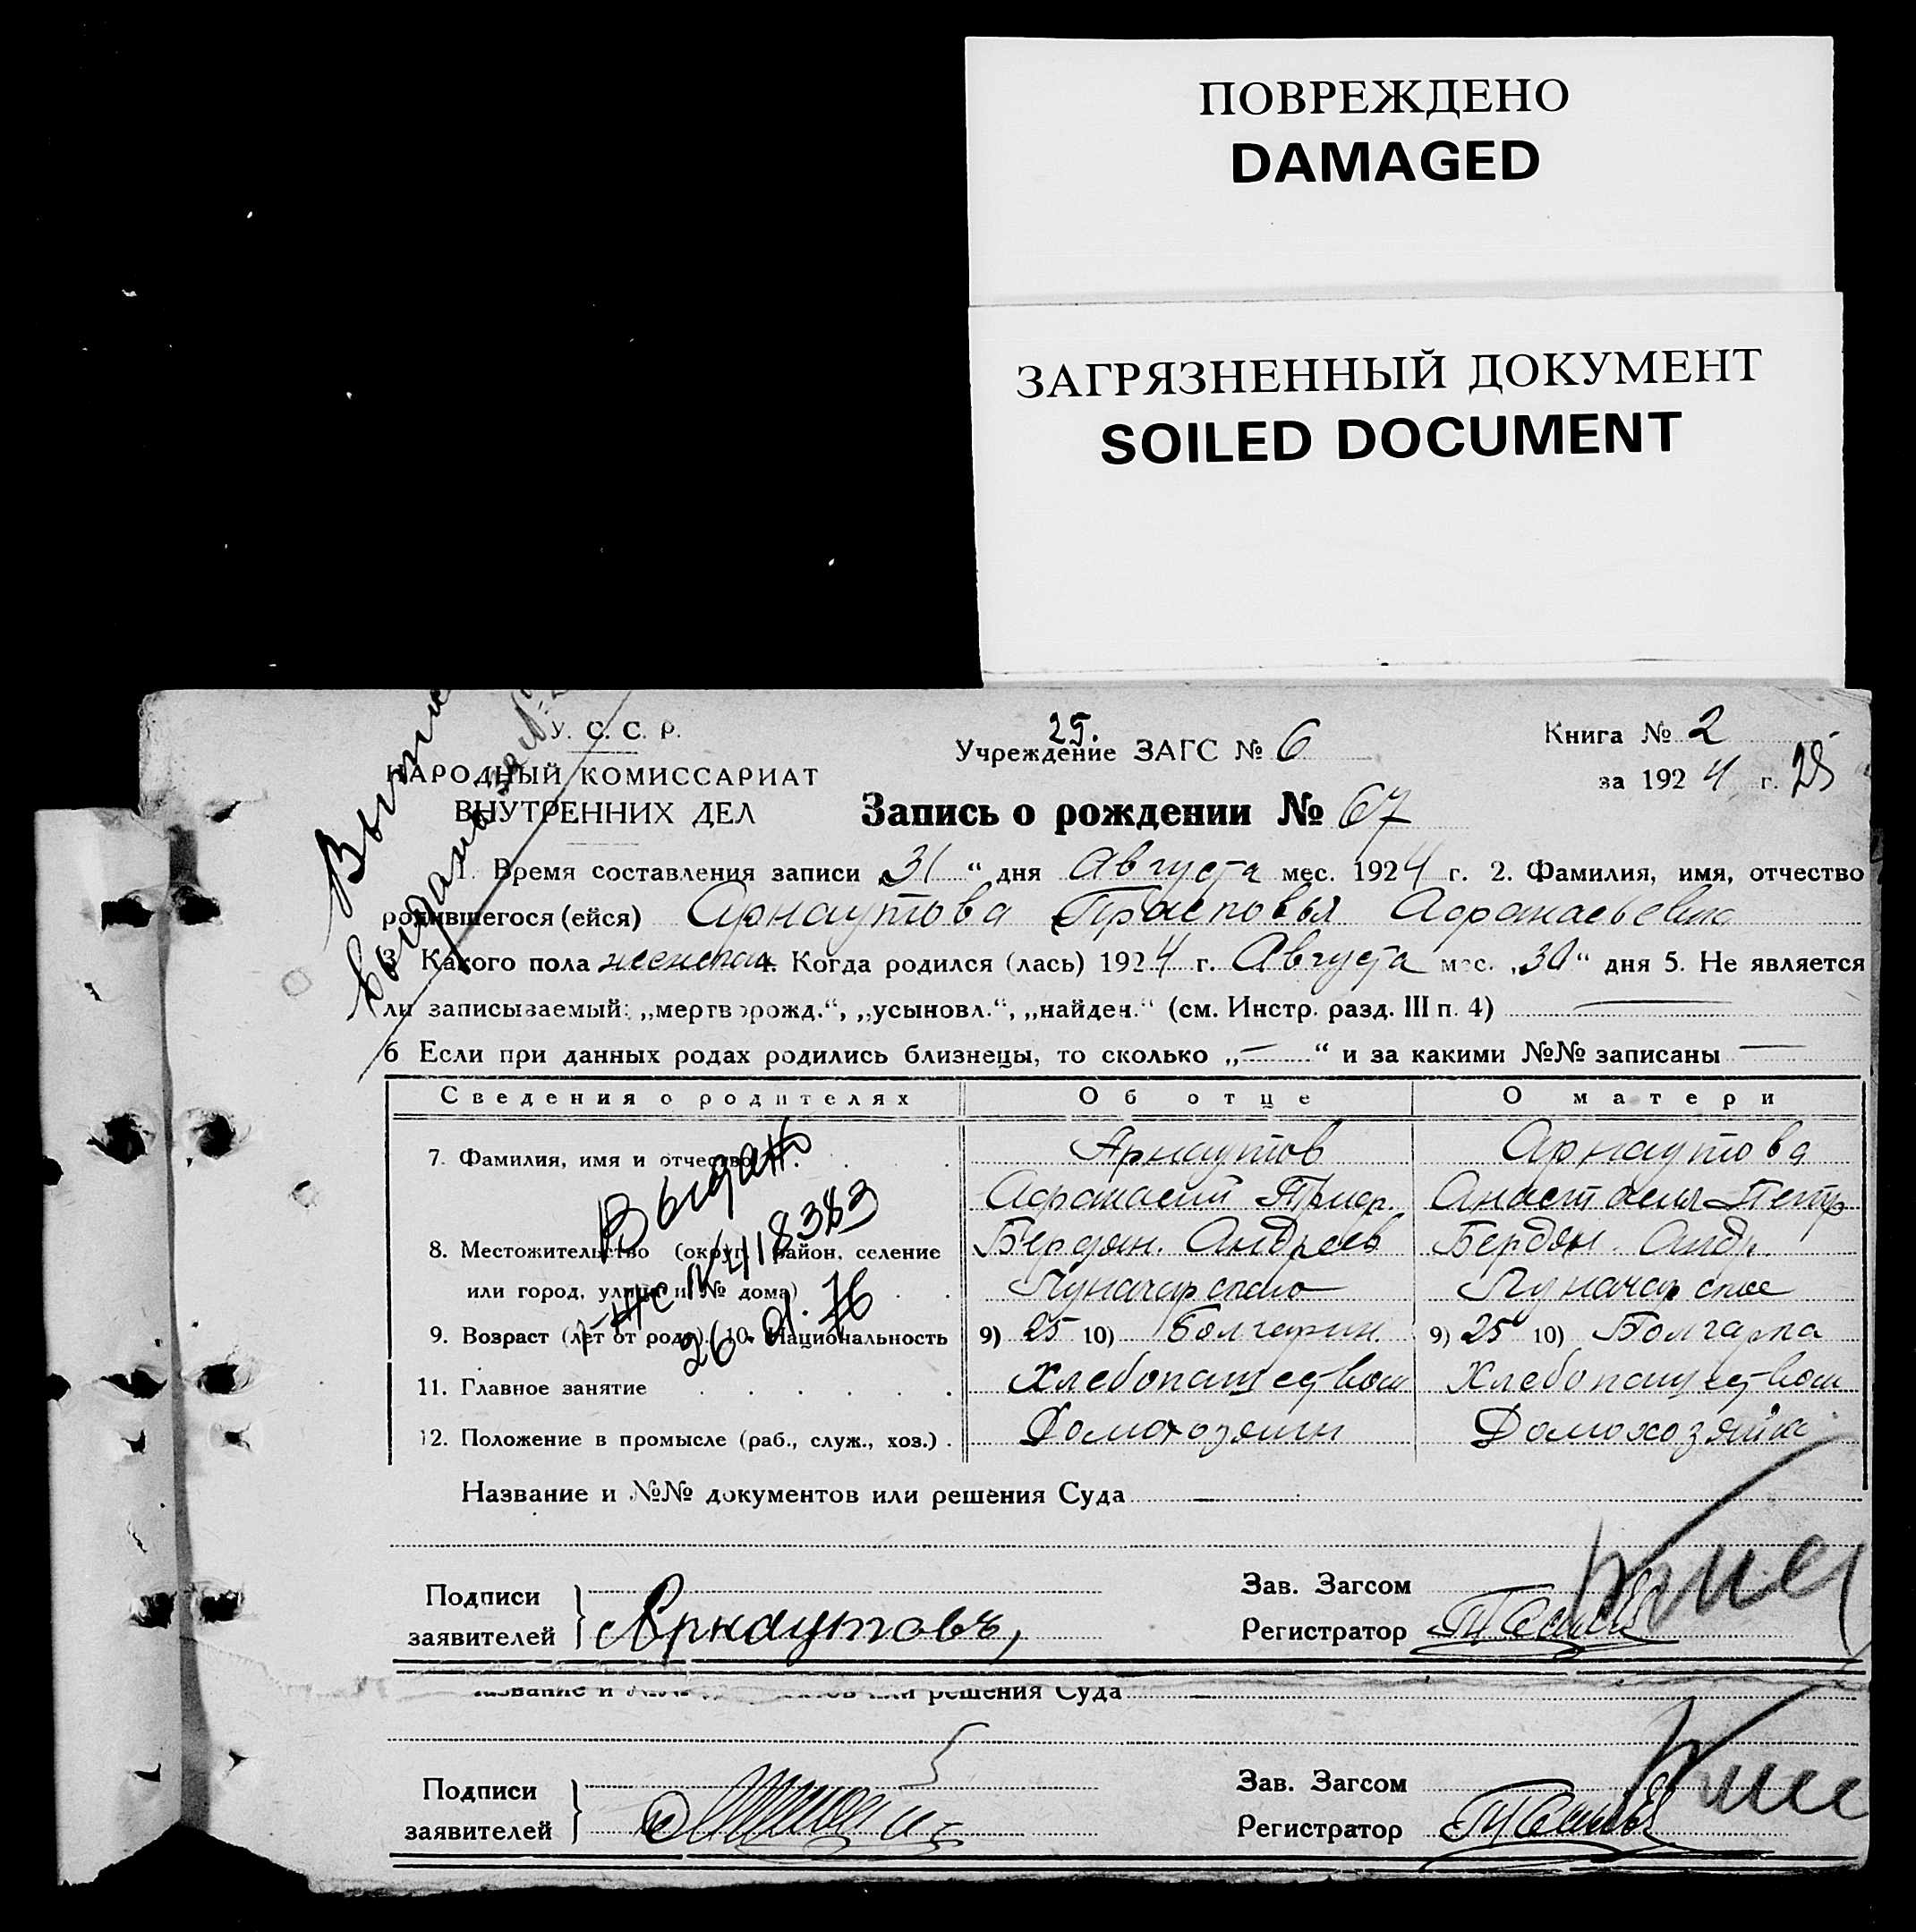 ПОВРЕЖДЕНО
DAMAGED
ЗАГРЯЗНЕННЫЙ ДОКУМЕНТ
SOILED DOCUMENT
У. С. С. Р.
НАРОДНЫЙ КОМИССАРИАТ
ВНУТРЕННИХ ДЕЛ
25.
Учреждение ЗАГС № 6
Книга № 2
за 1924 г. 25
Запись о рождении № 67
1. Время составления записи „31“ дня Августа мес. 1924 г. 2. Фамилия, имя, отчество
родившегося (ейся) Арнаутова Прасковья Афанасьевна
3 Какого пола женская 4. Когда родился (лась) 1924 г. Августа мес. „30“ дня 5. Не является
ли записываемый: „мертворожд.“, „усыновл.“, „найден.“ (см. Инстр. разд. III п. 4)
6 Если при данных родах родились близнецы, то сколько „—“ и за какими №№ записаны —
Сведения о родителях Об отце О матери
7. Фамилия, имя и отчество Арнаутов Арнаутова
Афанасий Анастасия Петр
8. Местожительство (округ, район, селение Бердян. Андреев Бердян. Андр.
или город, улица и № дома)
9. Возраст (лет от роду). 10. Национальность 9) 25 10) Болгарин. 9) 25 10) Болгарка
11. Главное занятие Хлебопашеством Хлебопашеством
12. Положение в промысле (раб., служ., хоз.) Домохозяин Домохозяйка
Выдано
418383
26.01.76
Название и №№ документов или решения Суда —
Подписи
заявителей
Арнаутовъ,
Зав. Загсом
Регистратор
Название и решения Суда —
Подписи
заявителей
Зав. Загсом
Регистратор